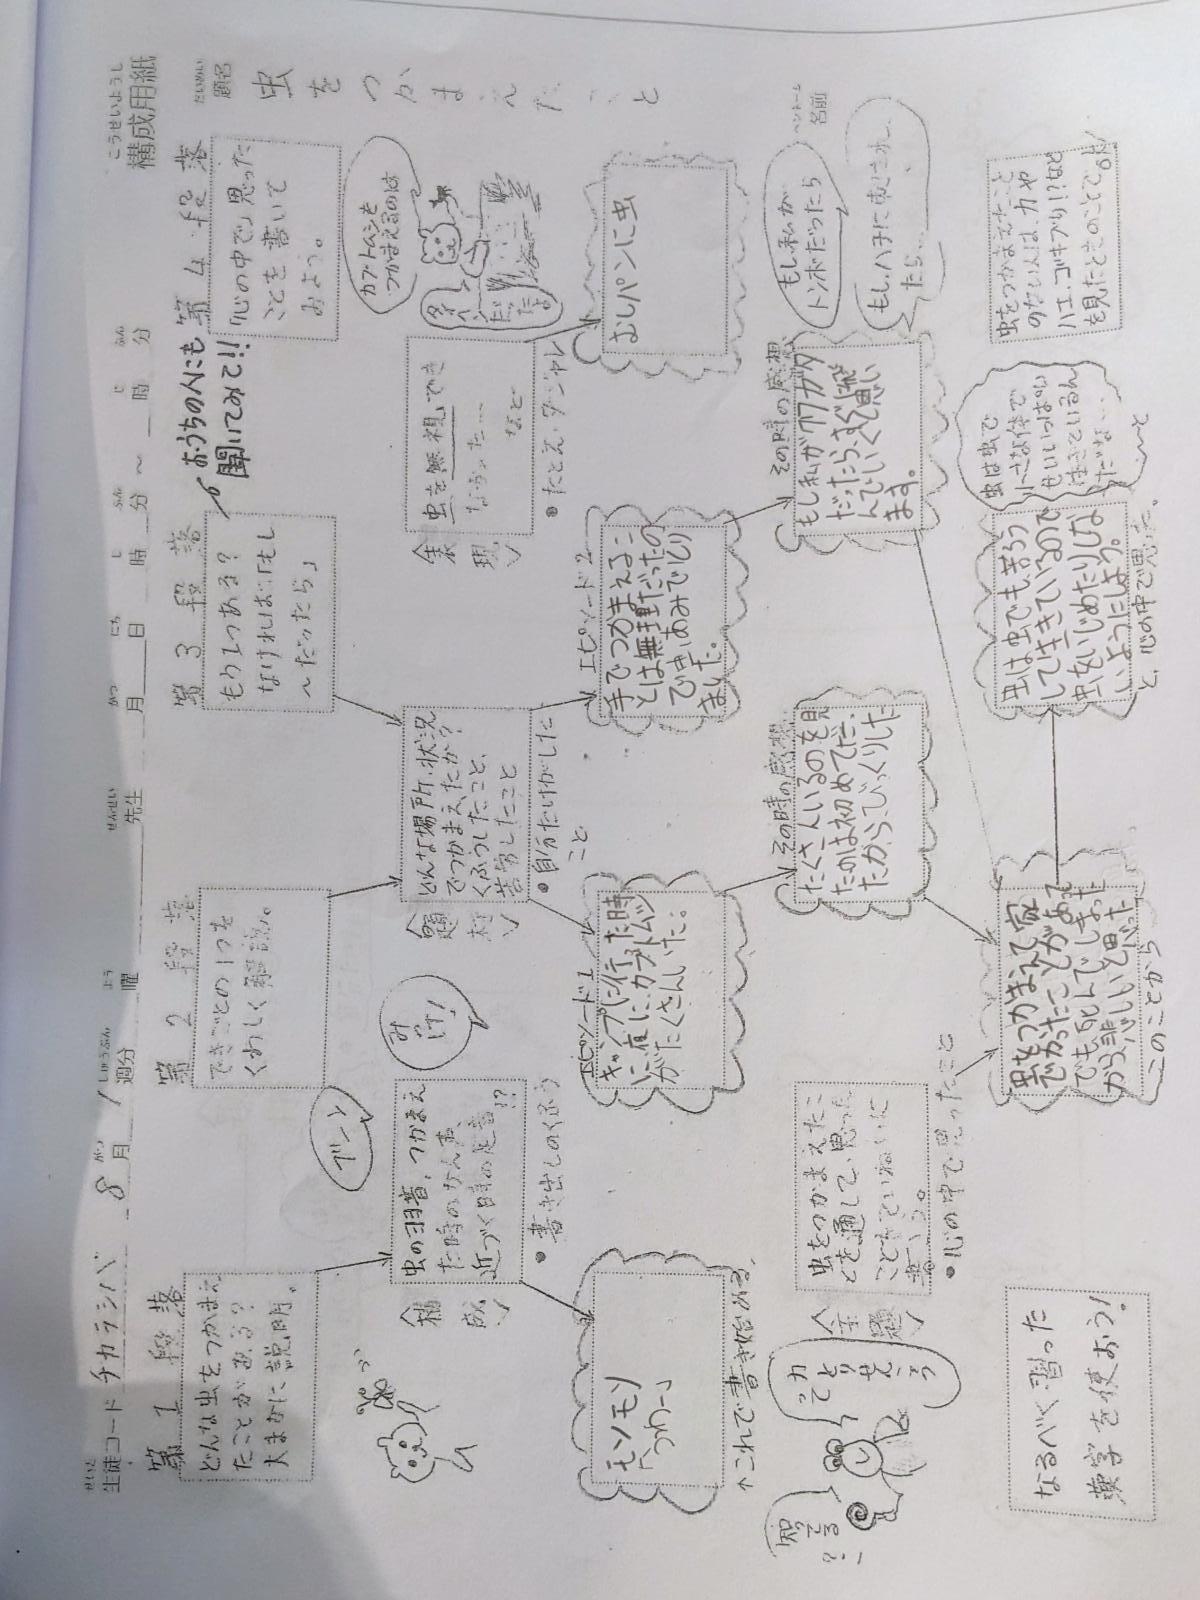 構成用紙
こうせいようし
題名
だいめい
虫をつかまえたこと
ペンネーム
名前
生徒コード チカラシバ 8月 1週分 曜 先生 月 日 時 分 〜 時 分
第1段落
どんな虫をつかまえ
たことがある?
大まかに説明。
第2段落
できごとの1つを
くわしく解説。
第3段落
もう1つある?
なければ「もし
〜だったら」
おうちの人にも
聞いてみて!!
第4段落
「心の中で」思った
ことを書いて
みよう。
〈構成〉
虫の羽音、つかまえ
た時のなん声、
近づく時の足音!?
・書き出しのくふう
ブーン
みーけ!
〈題材〉
どんな場所・状況
でつかまえたか?
くふうしたこと、
苦労したこと
・自分だけがした
こと
〈表現〉
虫を無視でき
なかった…
など
・たとえ・ダジャレ
カブトムシを
つかまえるのは
モンモン
「つかー」
↑これで書き始める。
エピソード1
キャンプに行った時
に、夜に、カブトムシ
がたくさんいた。
エピソード2
手でつかまえるこ
とは無理だったの
で虫あみでとり
ました。
むしパンに虫
その時の感想
たくさんいるのを見
たのは初めてだっ
たから、びっくりした
その時の感想
もし私がクワガタ
だったら、すぐに飛
んでいくと思い
ます。
もし私が
トンボだったら
もしハチにおそわれ
たら…
〈主題〉
虫をつかまえたこ
とを通して、思った
ことをていねいに
書こう。
・心の中で思ったこと
知ってる?
カとりせんこうで
虫をつかまえて家
でかったことがあって
でも死んでしまった
から、悲しいと思った
このことから
虫は虫でも苦ろう
して生きているので
虫をいじめたりしな
いようにしよう。
と、心の中で思った。
虫は虫で
小さな体で
せいいっぱい
生きているん
だな…
…と
虫をつかまえたこと
のない人は、カや
ハエ、ゴキブリ!?など
を見たときのことでOK!
なるべく習った
漢字を使おう!